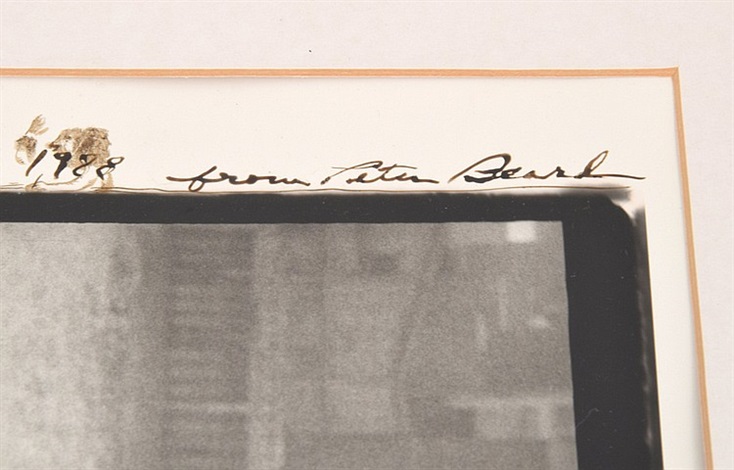 1988 from Peter Beard